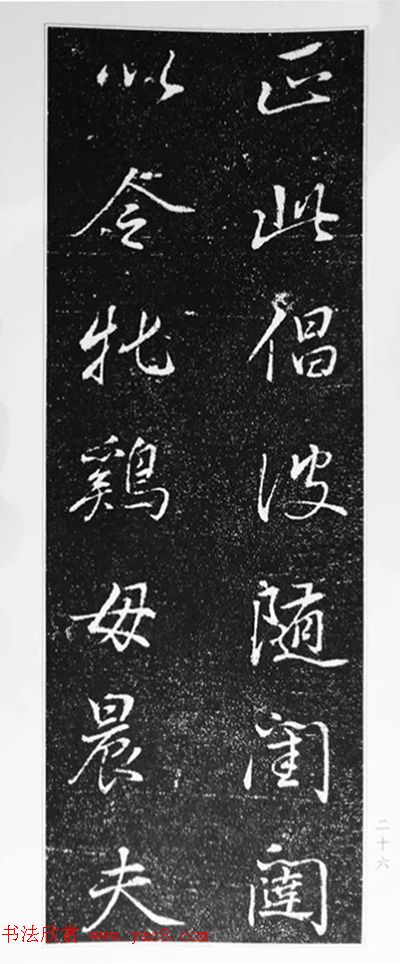 正此倡彼随閨闈
以令牝鷄毋晨夫
二十六
书法欣赏 www.yac8.com